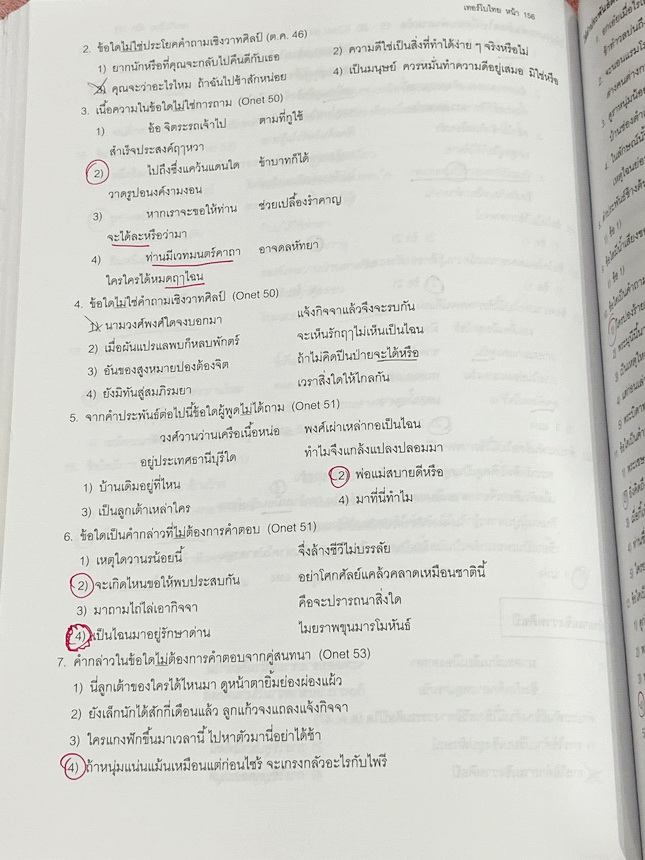 เทอร์โบไทย หน้า 156
2. ข้อใดไม่ใช่ประโยคคำถามเชิงวาทศิลป์ (ต.ค. 46)
1) ยากนักหรือที่คุณจะกลับไปคืนดีกับเธอ 2) ความดีใช่เป็นสิ่งที่ทำได้ง่าย ๆ จริงหรือไม่
3) คุณจะว่าอะไรไหม ถ้าฉันไปช้าสักหน่อย 4) เป็นมนุษย์ ควรหมั่นทำความดีอยู่เสมอ มิใช่หรือ
3. เนื้อความในข้อใดไม่ใช่การถาม (Onet 50)
1) อ้อ จิตระรถเจ้าไป ตามที่กูใช้
สำเร็จประสงค์ฤๅหวา
2) ไปถึงซึ่งแคว้นแดนใด ข้าบาทก็ได้
วาดรูปอนงค์งามงอน
3) หากเราจะขอให้ท่าน ช่วยเปลื้องรำคาญ
จะได้ละหรือว่ามา
4) ท่านมีเวทมนตร์คาถา อาจดลหัทยา
ใครใครได้หมดฤๅไฉน
4. ข้อใดไม่ใช่คำถามเชิงวาทศิลป์ (Onet 50)
1) นามวงศ์พงศ์ใดจงบอกมา แจ้งกิจจาแล้วจึงจะรบกัน
2) เมื่อผันแปรแลพบก็หลบพักตร์ จะเห็นรักฤๅไม่เห็นเป็นไฉน
3) อันของสูงหมายปองต้องจิต ถ้าไม่คิดปีนป่ายจะได้หรือ
4) ยังมิทันสู่สมภิรมยา เวราสิ่งใดให้ไกลกัน
5. จากคำประพันธ์ต่อไปนี้ข้อใดผู้พูดไม่ได้ถาม (Onet 51)
วงศ์วานว่านเครือเนื้อหน่อ พงศ์เผ่าเหล่ากอเป็นไฉน
อยู่ประเทศธานีบุรีใด ทำไมจึงแกล้งแปลงปลอมมา
1) บ้านเดิมอยู่ที่ไหน 2) พ่อแม่สบายดีหรือ
3) เป็นลูกเต้าเหล่าใคร 4) มาที่นี่ทำไม
6. ข้อใดเป็นคำกล่าวที่ไม่ต้องการคำตอบ (Onet 51)
1) เหตุใดวานรน้อยนี้ จึ่งล้างชีวีไม่บรรลัย
2) จะเกิดไหนขอให้พบประสบกัน อย่าโศกศัลย์แคล้วคลาดเหมือนชาตินี้
3) มาถามไถ่ไล่เอากิจจา คือจะปรารถนาสิ่งใด
4) เป็นไฉนมาอยู่รักษาด่าน ไมยราพขุนมารโมหันธ์
7. คำกล่าวในข้อใดไม่ต้องการคำตอบจากคู่สนทนา (Onet 53)
1) นี่ลูกเต้าของใครได้ไหนมา ดูหน้าตายิ้มย่องผ่องแผ้ว
2) ยังเล็กนักได้สักกี่เดือนแล้ว ลูกแก้วจงแถลงแจ้งกิจจา
3) ใครแกงฟักขึ้นมาเวลานี้ ไปหาตัวมานี่อย่าได้ช้า
4) ถ้าหนุ่มแน่นแม้นเหมือนแต่ก่อนไซร้ จะเกรงกลัวอะไรกับไพรี